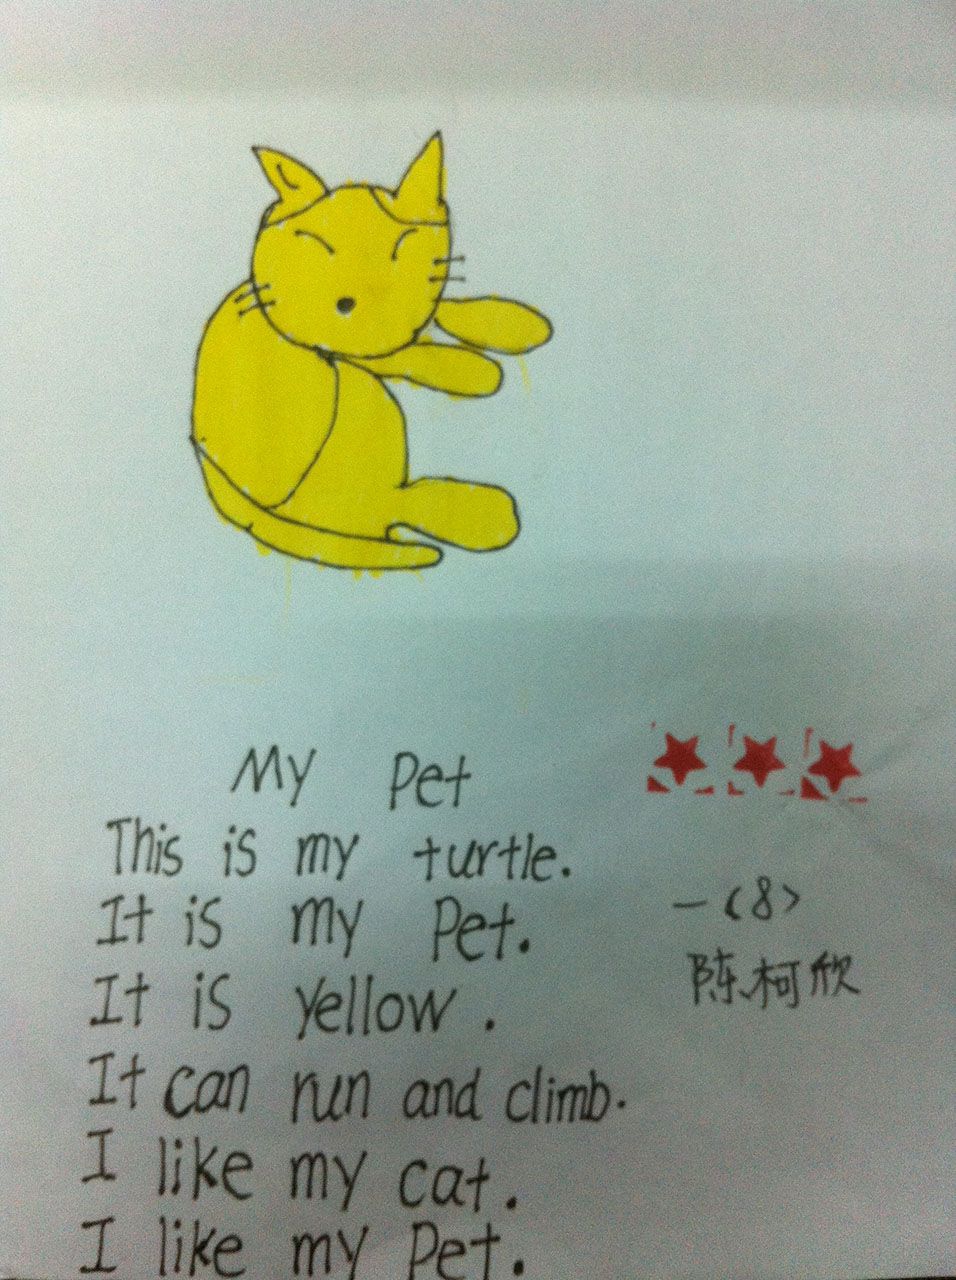 My Pet
This is my turtle.
It is my Pet.
It is yellow.
It can run and climb.
I like my cat.
I like my Pet.
一(8)
陈柯欣